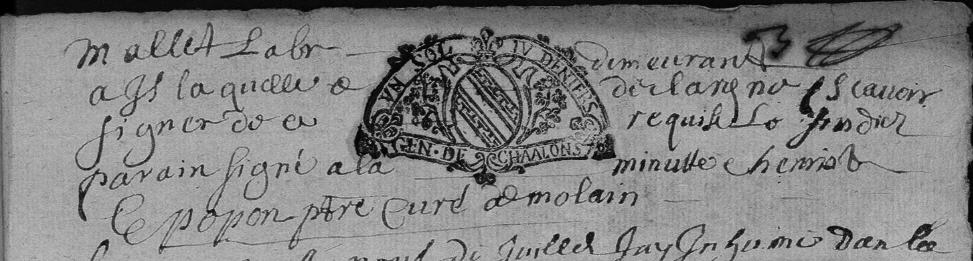 Mallet Labr demeurant B
a Is laquelle a declaré ne Scavoir
signer de ce requise Le Susdict
parain signé a la minutte Chenriot
Le popon ptre Curé de molain
de Juillet Jay Inhumé dan lée
VN SOL IV DENIERS
GEN · DE CHAALONS